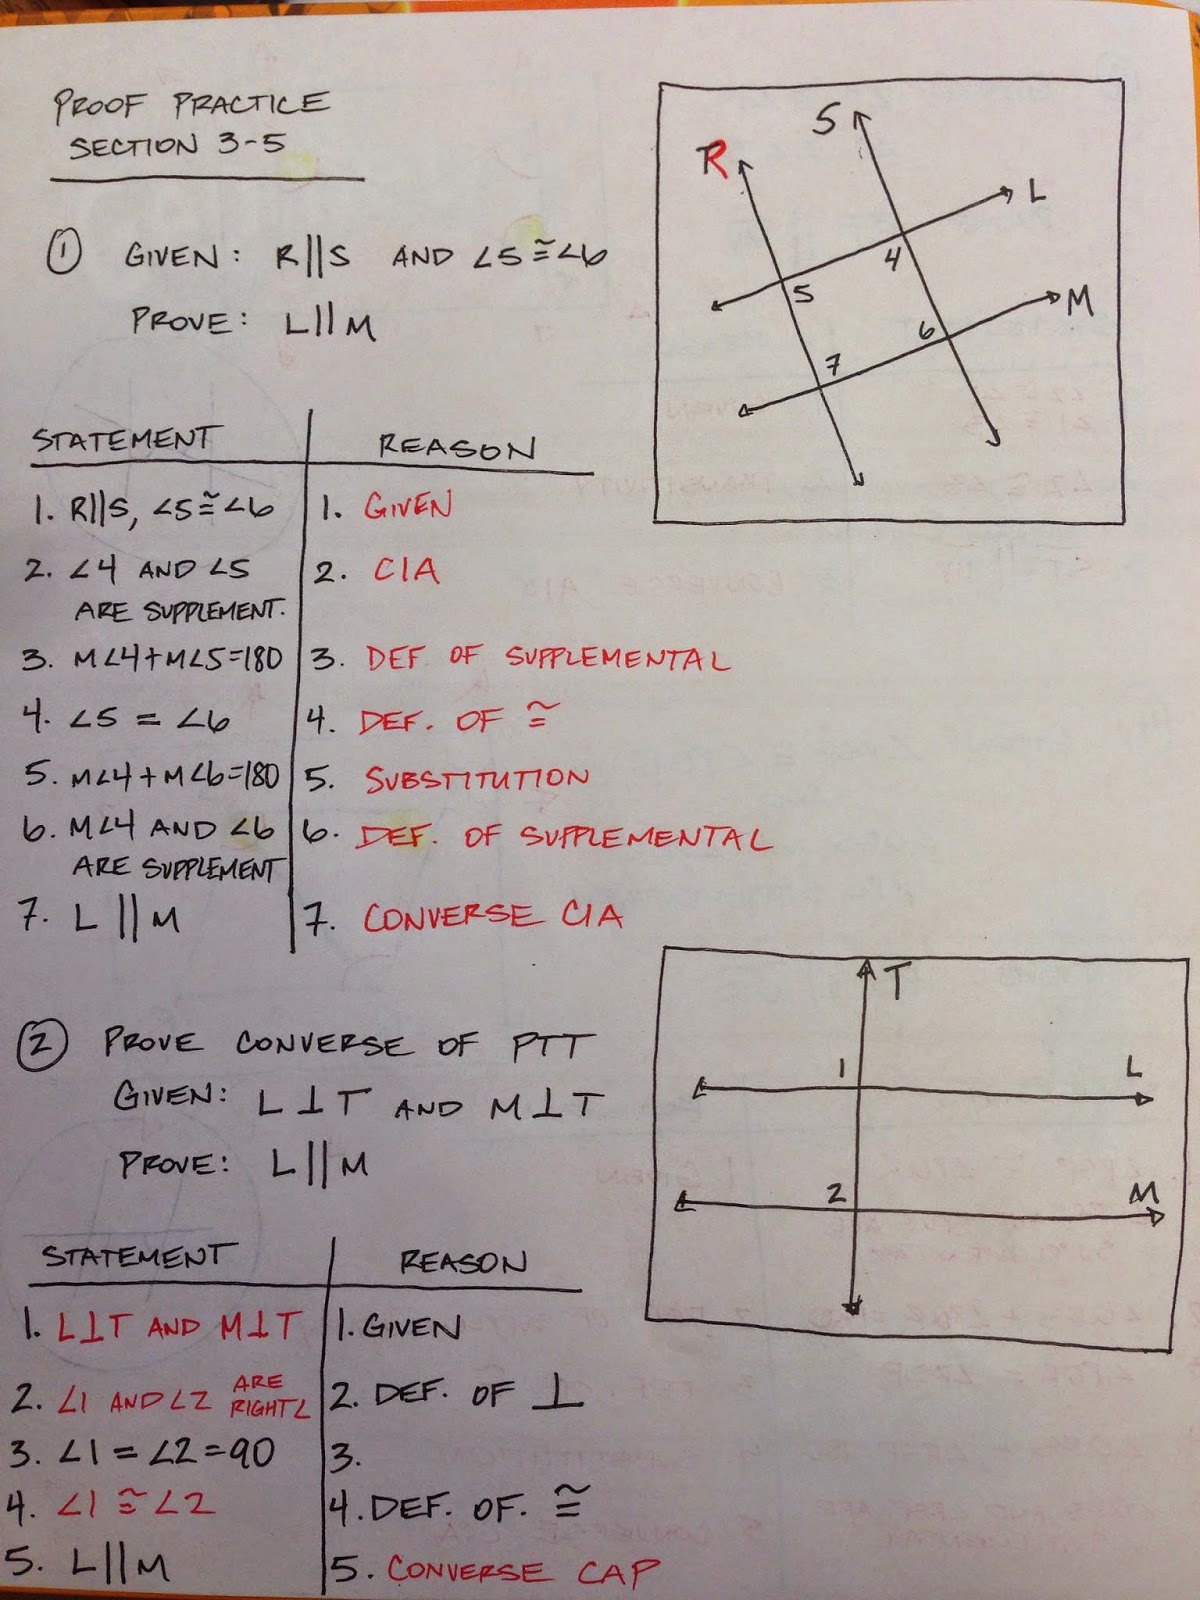 PROOF PRACTICE
SECTION 3-5
① GIVEN: R||S AND ∠5≅∠6
PROVE: L||M
S
R
L
4
5
M
6
7
STATEMENT REASON
1. R||S, ∠5≅∠6 1. GIVEN
2. ∠4 AND ∠5 2. CIA
ARE SUPPLEMENT.
3. M∠4+M∠5=180 3. DEF OF SUPPLEMENTAL
4. ∠5 = ∠6 4. DEF. OF ≅
5. M∠4+M∠6=180 5. SUBSTITUTION
6. M∠4 AND ∠6 6. DEF. OF SUPPLEMENTAL
ARE SUPPLEMENT
7. L ||M 7. CONVERSE CIA
② PROVE CONVERSE OF PTT
GIVEN: L⊥T AND M⊥T
PROVE: L||M
T
1
L
2
M
STATEMENT REASON
1. L⊥T AND M⊥T 1. GIVEN
2. ∠1 AND ∠2 ARE RIGHT∠ 2. DEF. OF ⊥
3. ∠1=∠2=90 3.
4. ∠1≅∠2 4. DEF. OF. ≅
5. L||M 5. CONVERSE CAP